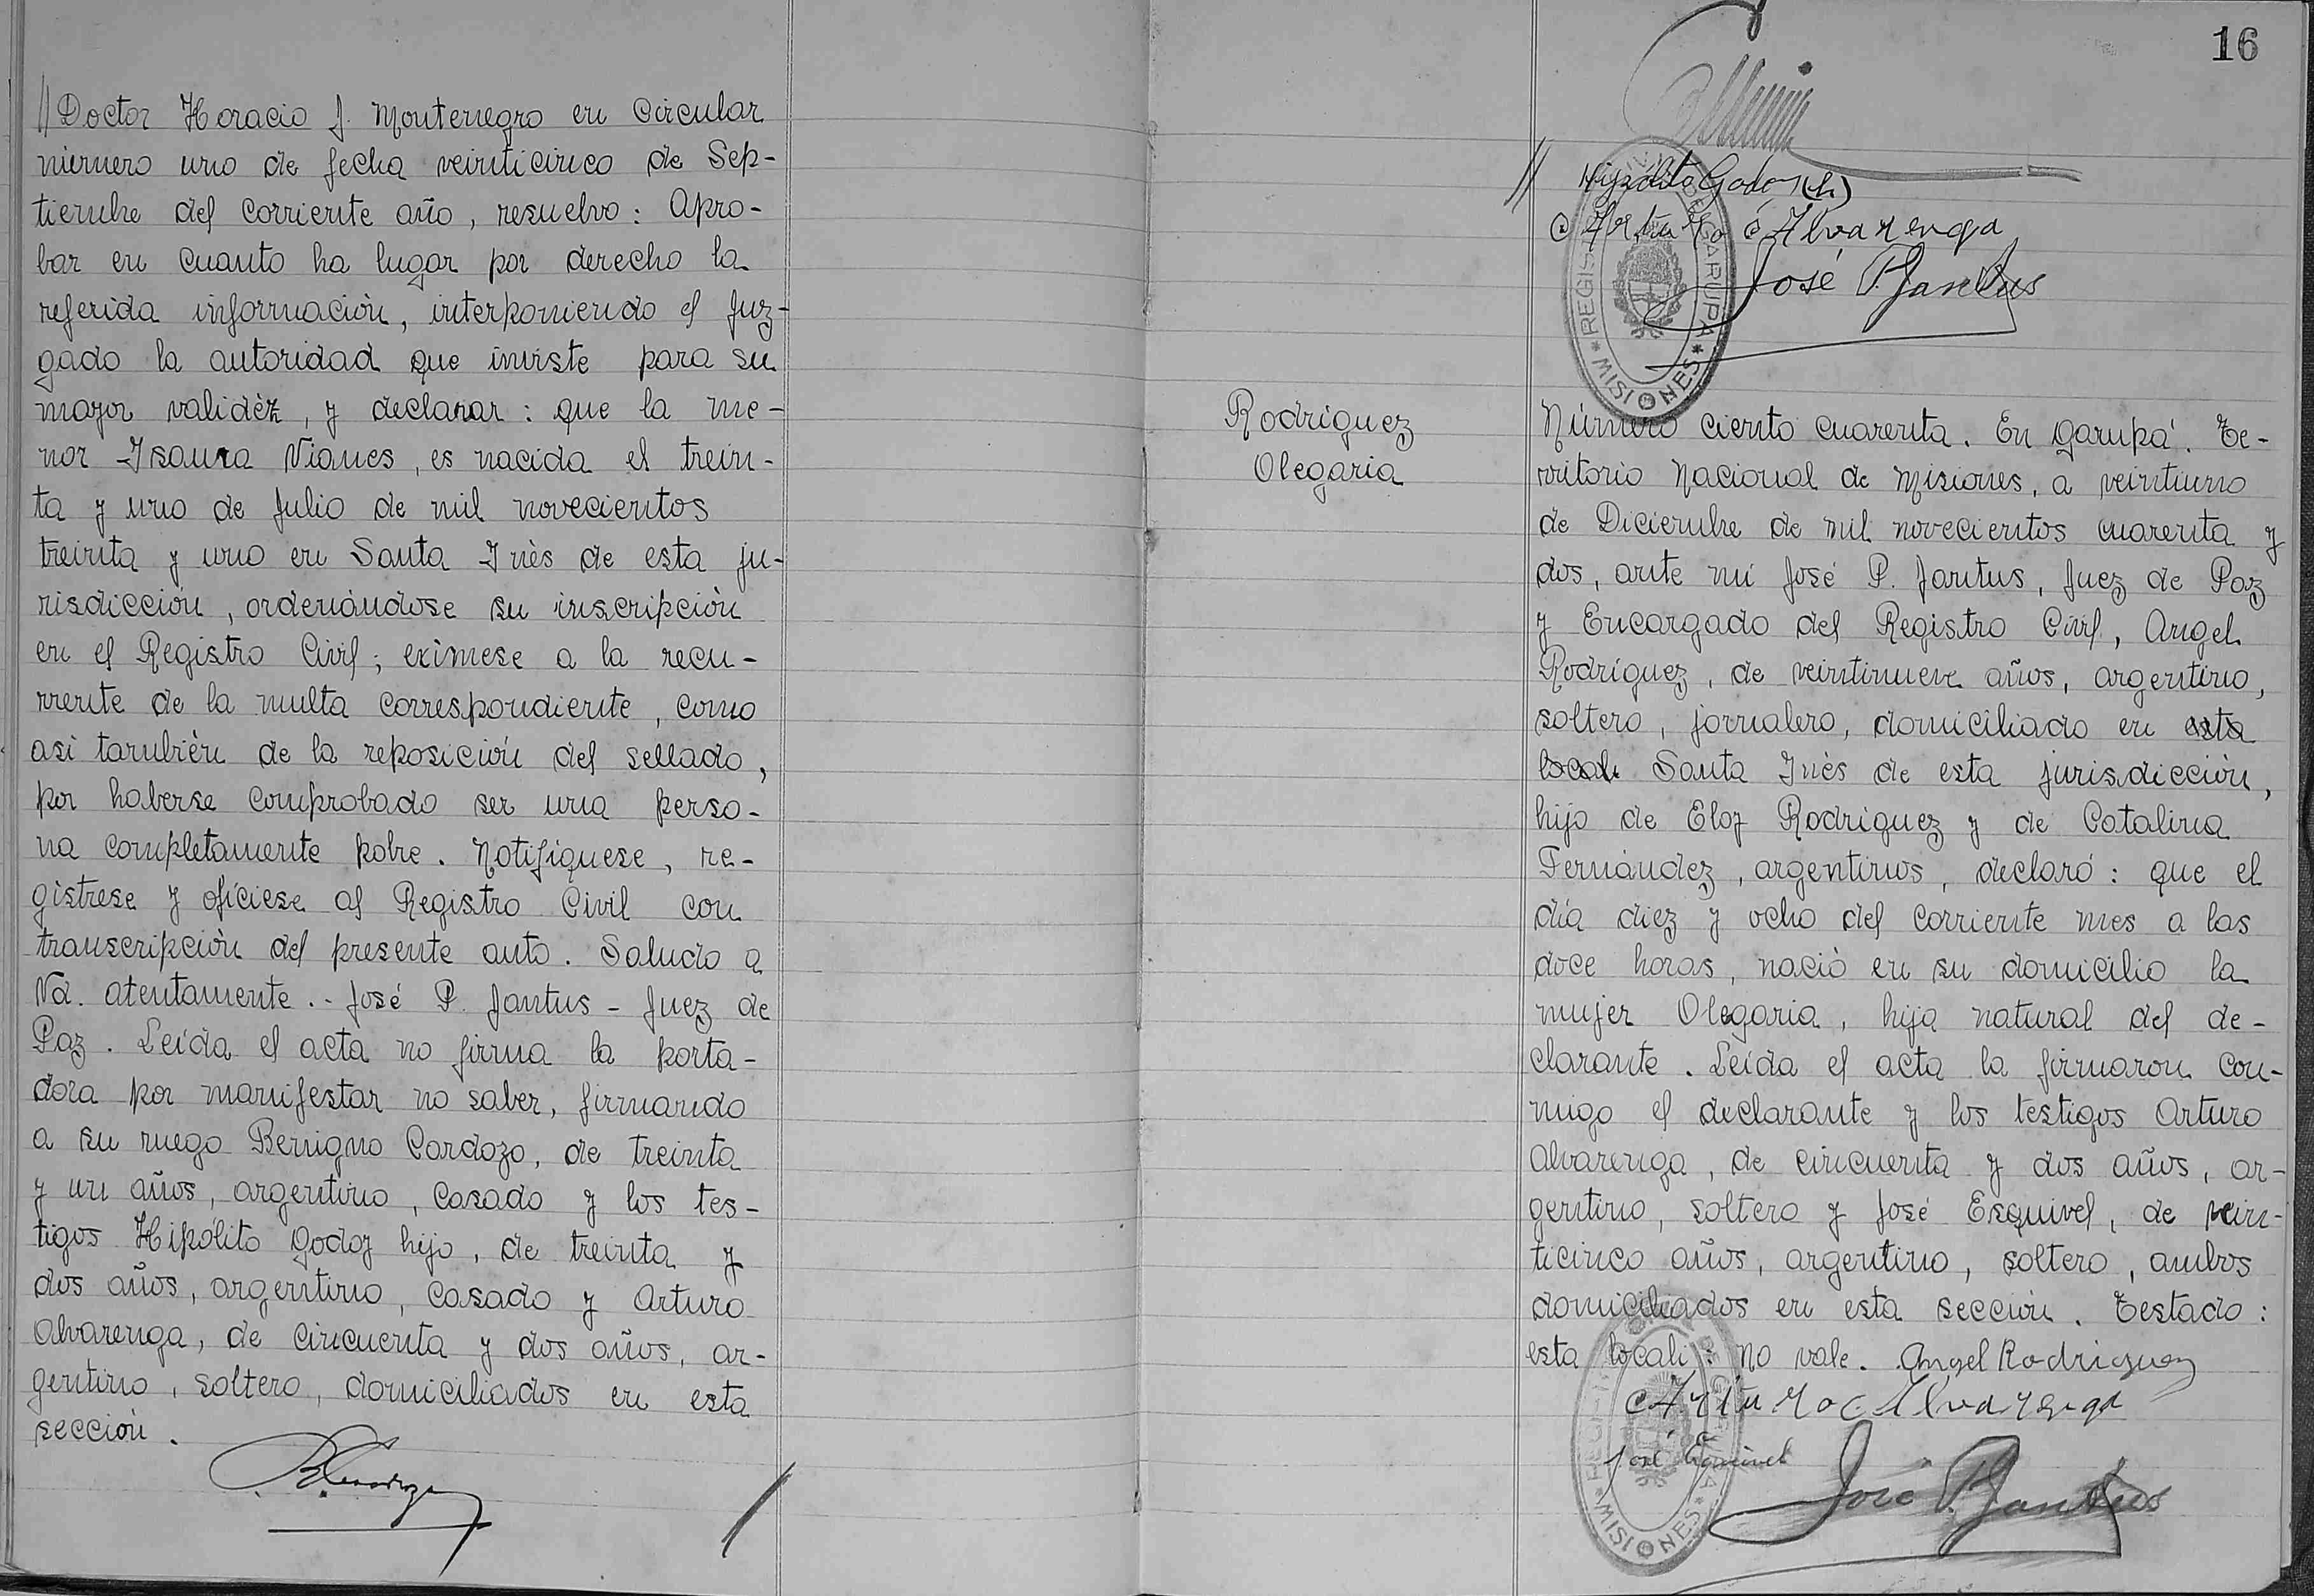 // Doctor Horacio J. Montenegro en Circular
número uno de fecha veinticinco de Sep-
tiembre del corriente año, resuelvo: Apro-
bar en cuanto ha lugar por derecho la
referida información, interponiendo el Juz-
gado la autoridad que inviste para su
mayor validéz, y declarar: que la me-
nor Isaura Vianes, es nacida el trein-
ta y uno de Julio de mil novecientos
treinta y uno en Santa Inès de esta ju-
risdicción, ordenándose su inscripciòn
en el Registro Civil; exímese a la recu-
rrente de la multa correspondiente, como
asi tambièn de la reposición del sellado,
por haberse comprobado ser una perso-
na completamente pobre. Notifíquese, re-
gistrese y ofíciese al Registro Civil con
transcripciòn del presente auto. Saludo a
Vd. atentamente.- José P. Jantus - Juez de
Paz. Leída el acta no firma la porta-
dora por manifestar no saber, firmando
a su ruego Benigno Cardozo, de treinta
y un años, argentino, casado y los tes-
tigos Hipólito Godoy hijo, de treinta y
dos años, argentino, casado y Arturo
Alvarenga, de cincuenta y dos años, ar-
gentino, soltero, domiciliados en esta
sección.
B. Cardozo
16
// Hipólito Godoy (h)
Arturo Alvarenga
José P. Jantus
REGISTRO CIVIL DE GARUPA
* MISIONES *
Rodríguez
Olegaria
Número ciento cuarenta. En Garupá. Te-
rritorio Nacional de Misiones, a veintiuno
de Diciembre de mil novecientos cuarenta y
dos, ante mí José P. Jantus, Juez de Paz
y Encargado del Registro Civil, Angel
Rodríguez, de veintinueve años, argentino,
soltero, jornalero, domiciliado en esta
locali Santa Inès de esta jurisdicciòn,
hijo de Eloy Rodríguez y de Catalina
Fernández, argentinos, declaró: que el
día diez y ocho del corriente mes a las
doce horas, naciò en su domicilio la
mujer Olegaria, hija natural del de-
clarante. Leída el acta la firmaron con-
migo el declarante y los testigos Arturo
Alvarenga, de cincuenta y dos años, ar-
gentino, soltero y José Esquivel, de vein-
ticinco años, argentino, soltero, ambos
domiciliados en esta sección. Testado:
esta locali: no vale. Angel Rodriguez
Arturo Alvarenga
José Esquivel
José P. Jantus
* MISIONES *